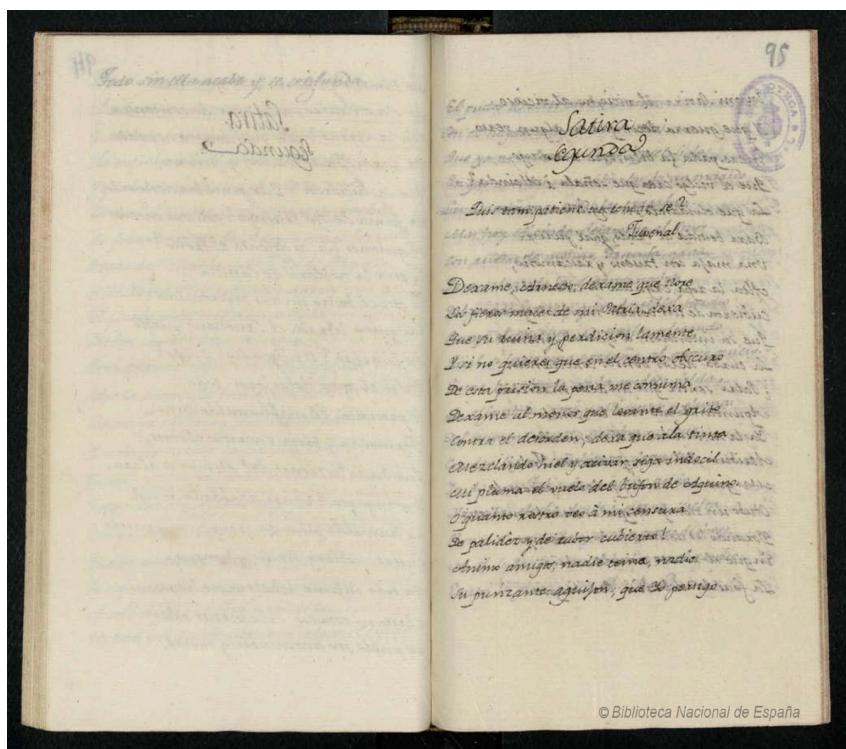 Todo sin ella acaba y se confunde
Satira
Segunda
95
Satira
Segunda
Quis tam patiens ut teneat se?
Juvenal.
Dexame, Arnesto, dexame que llore
Los fieros males de mi Patria, dexa
Que su ruina y perdicion lamente,
Y si no quieres que en el centro obscuro
De esta prision la pena me consuma
Dexame al menos que levante el grito
Contra el desorden; dexa que à la tinta
Mezclando hiel y acivar, siga indocil
Mi pluma el vuelo del bufon de Aquino.
O quanto rostro veo à mi censura
De palidez y de rubor cubierto!
Animo amigos, nadie tema, nadie
Su punzante aguijon, que Yo persigo
© Biblioteca Nacional de España